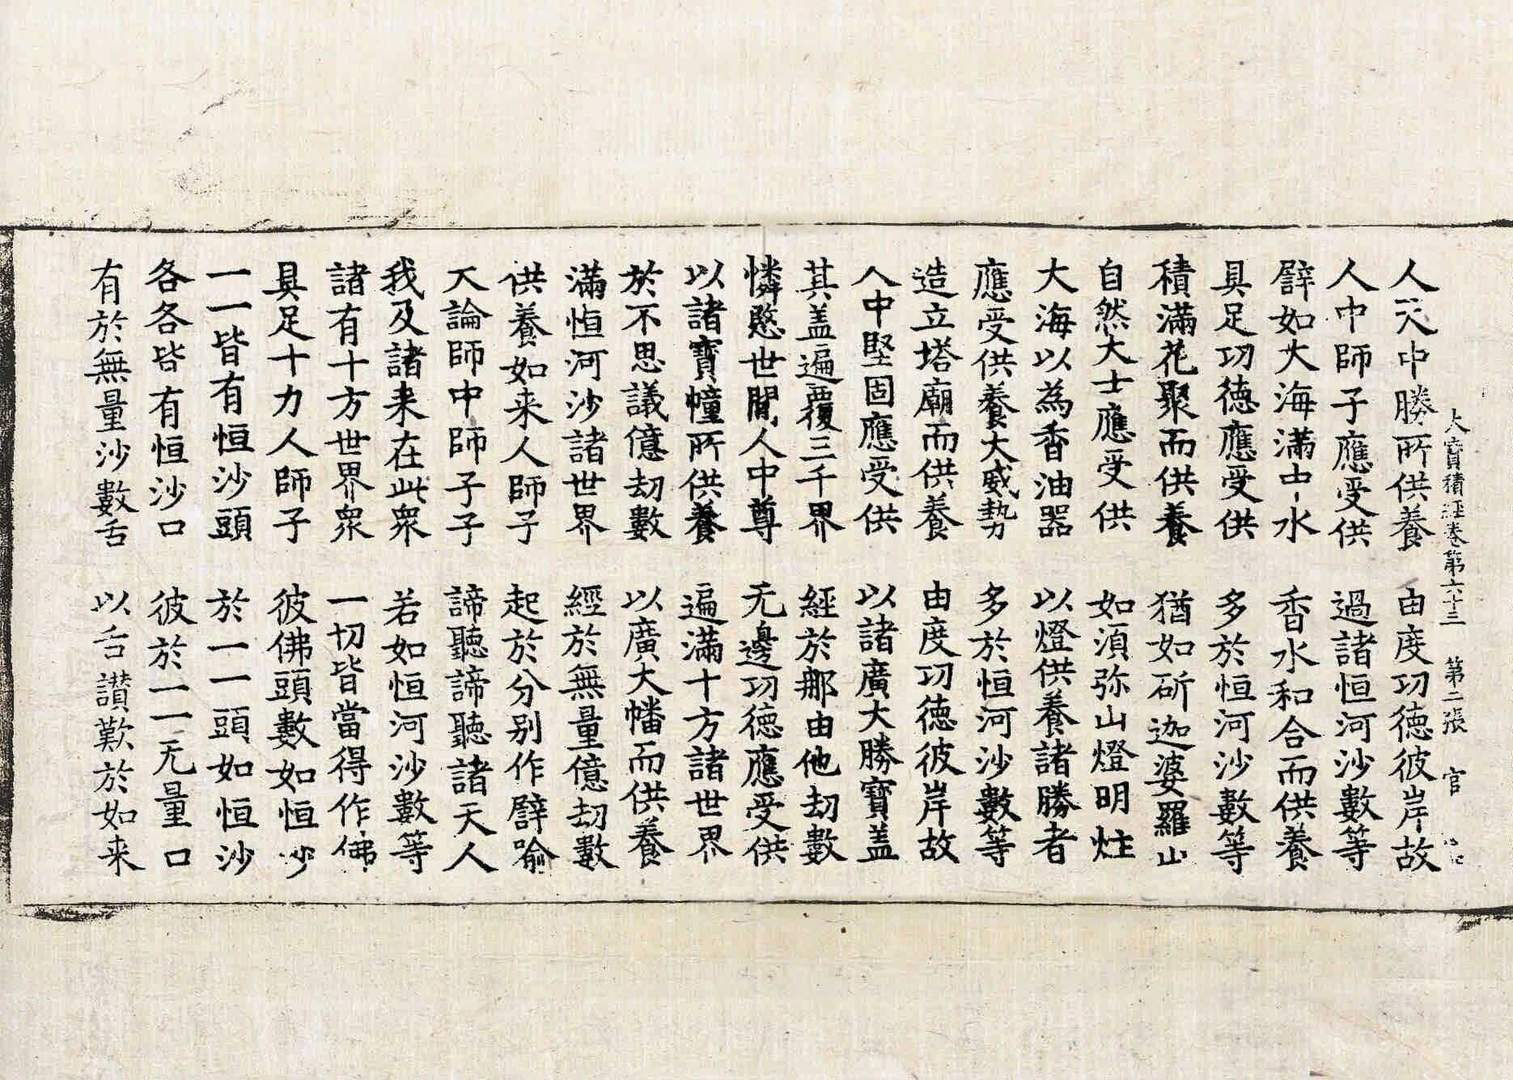 大寶積經卷第六十三　第二張　官
人天中勝所供養　由度功德彼岸故
人中師子應受供　過諸恒河沙數等
譬如大海滿中水　香水和合而供養
具足功德應受供　多於恒河沙數等
積滿花聚而供養　猶如斫迦婆羅山
自然大士應受供　如須弥山燈明炷
大海以為香油器　以燈供養諸勝者
應受供養大威勢　多於恒河沙數等
造立塔廟而供養　由度功德彼岸故
人中堅固應受供　以諸廣大勝寶蓋
其盖遍覆三千界　經於那由他劫數
憐愍世間人中尊　无邊功德應受供
以諸寶幢所供養　遍滿十方諸世界
於不思議億劫數　以廣大幡而供養
滿恒河沙諸世界　經於無量億劫數
供養如来人師子　起於分別作譬喻
大論師中師子子　諦聽諦聽諸天人
我及諸来在此衆　若如恒河沙數等
諸有十方世界衆　一切皆當得作佛
具足十力人師子　彼佛頭數如恒沙
一一皆有恒沙頭　於一一頭如恒沙
各各皆有恒沙口　彼於一一无量口
有於無量沙數舌　以舌讃歎於如来